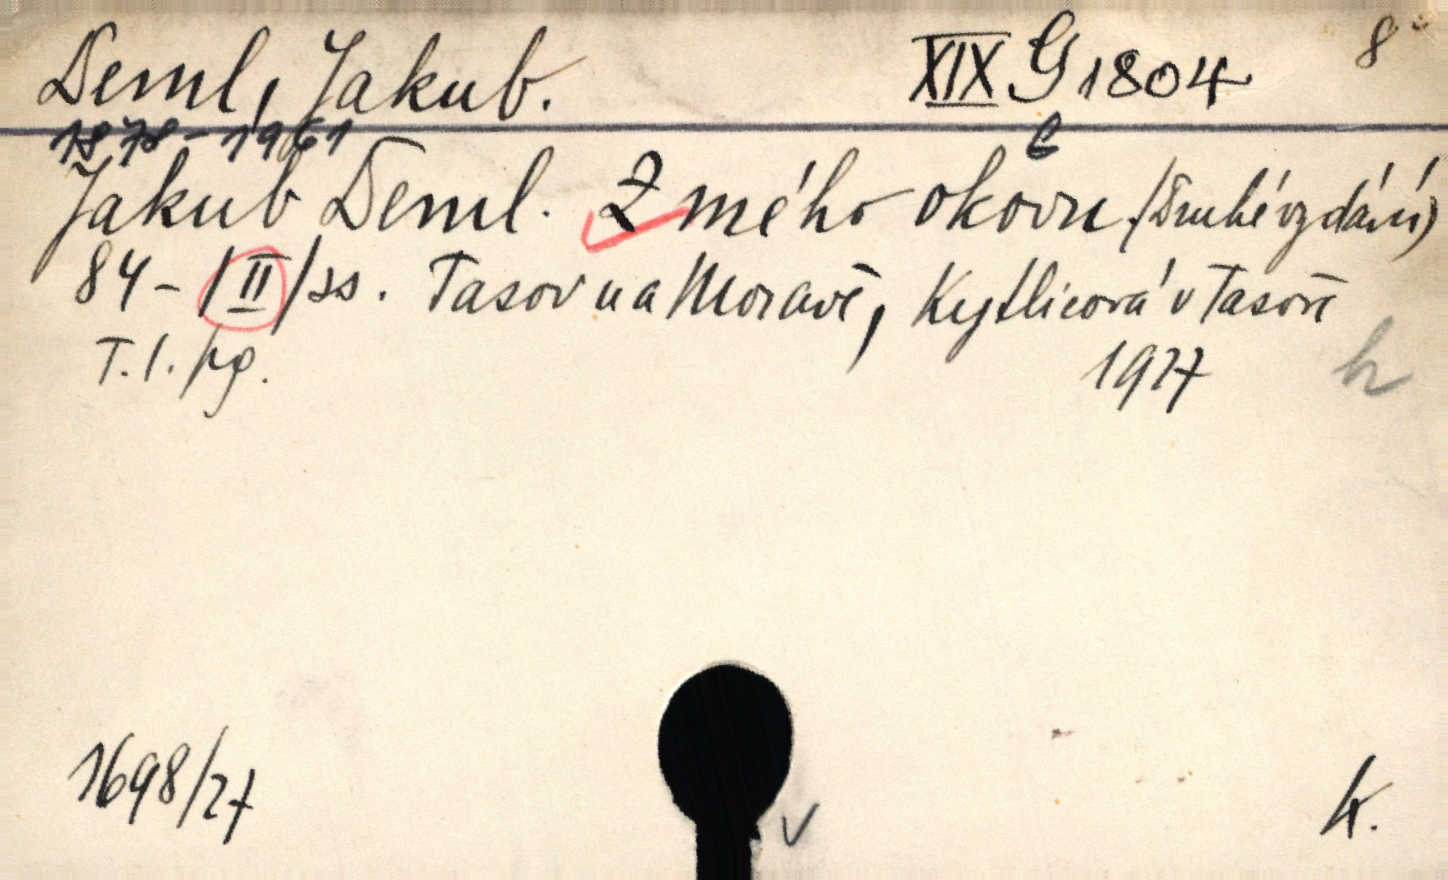 Deml, Jakub. XIX G 1804 8°
1878-1961 E
Jakub Deml. Z mého okovu. (Druhé vydání)
84 - /II/ ss. Tasov na Moravě, Kytlicová v Tasově
T. l. pg. 1927 h
1698/27
v K.